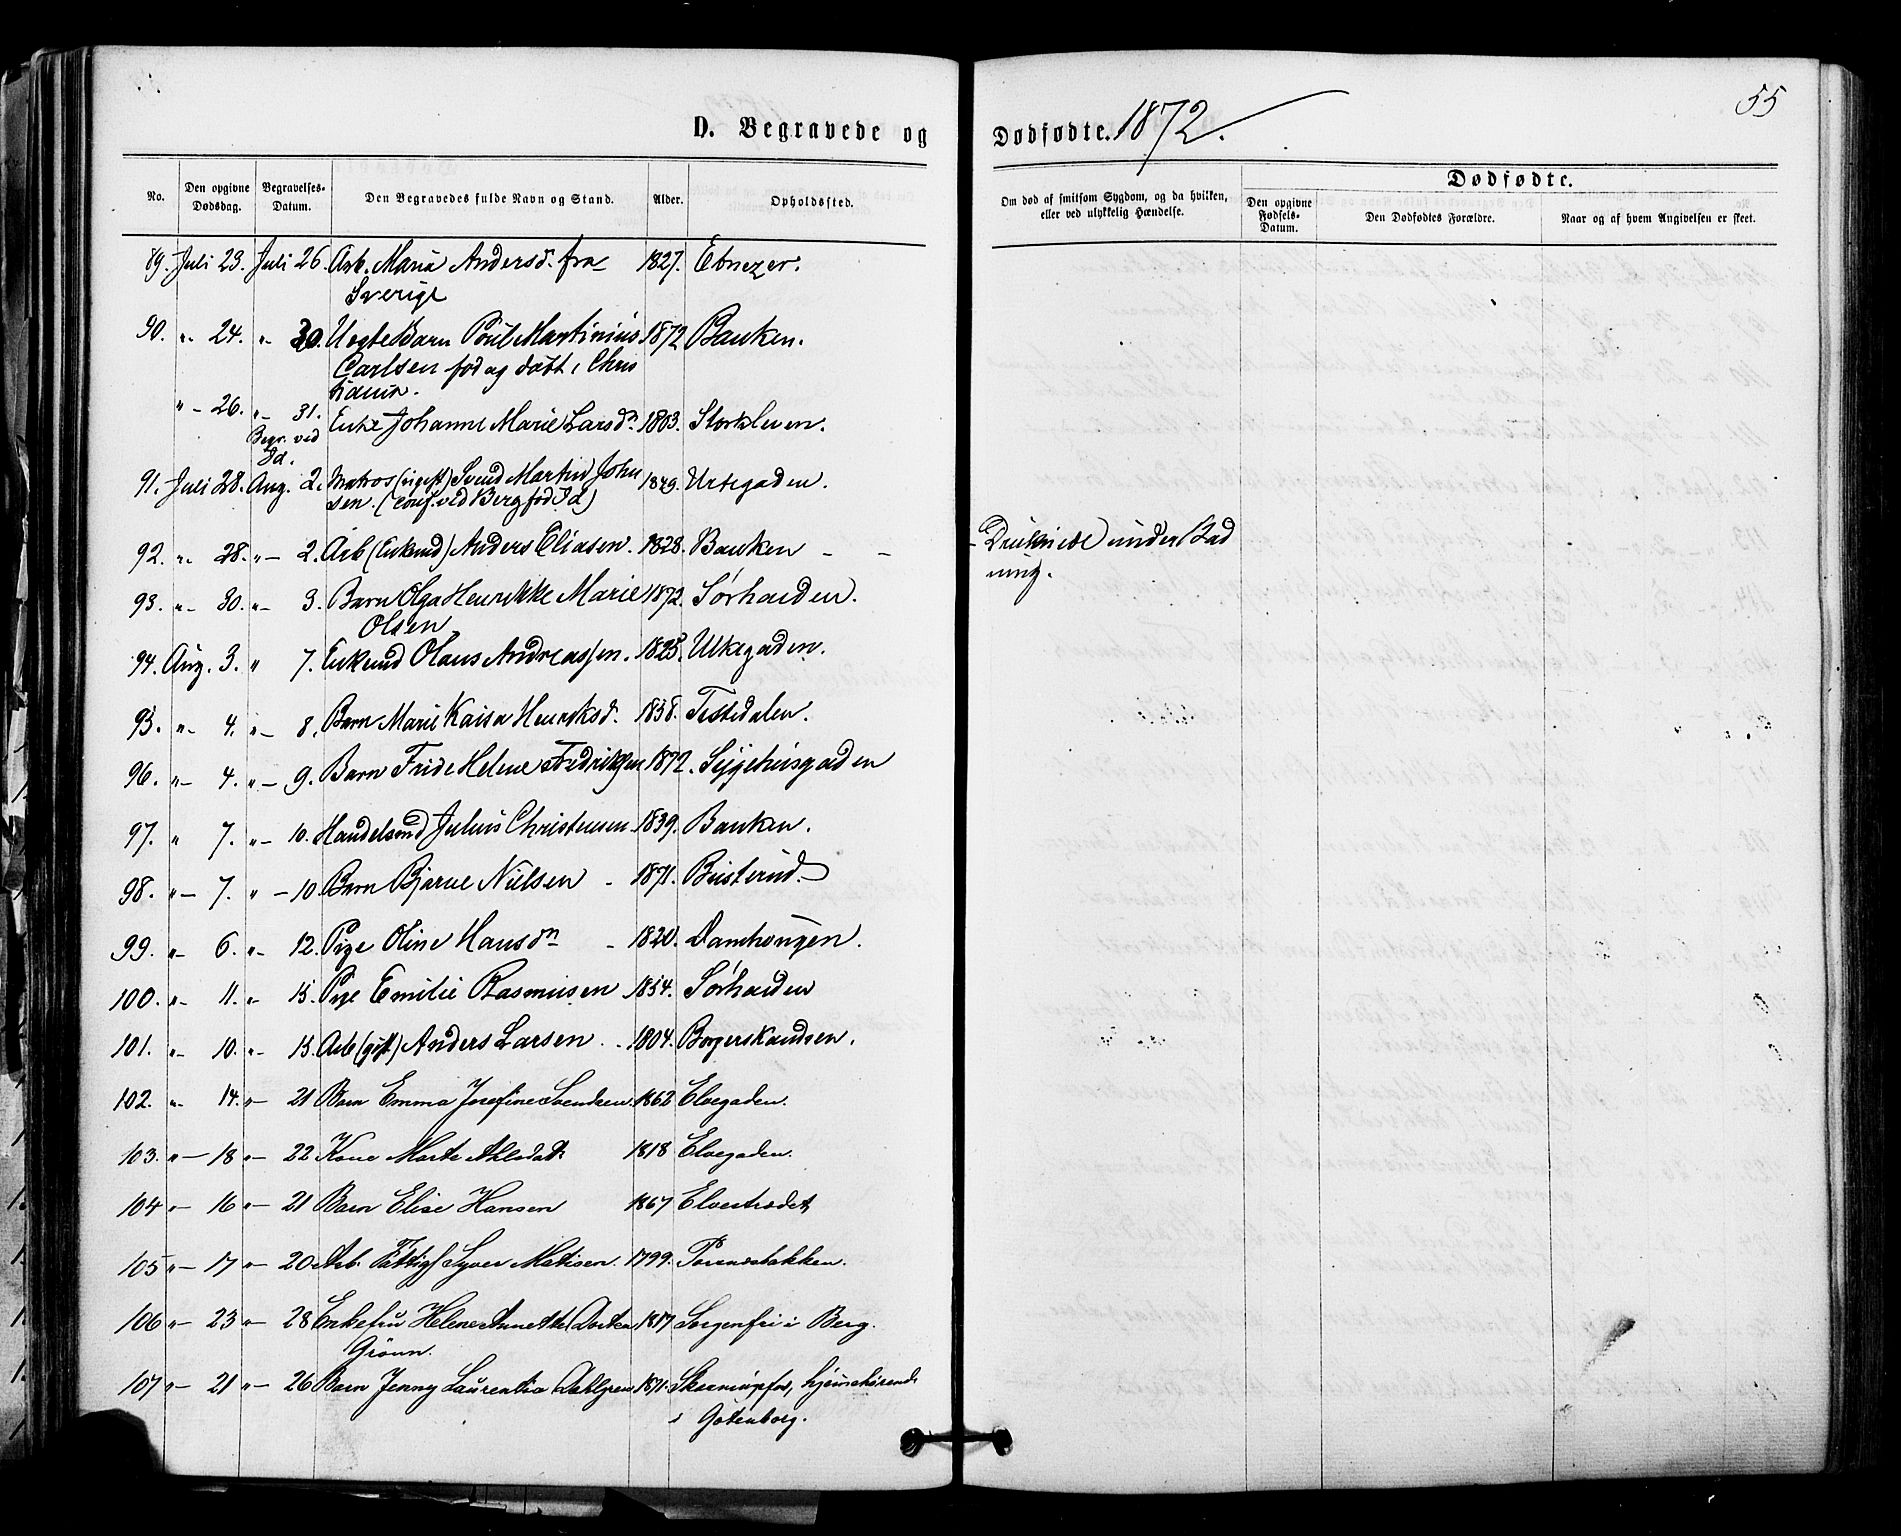 55
D. Begravede og Dødfødte. 1872.
No. Den opgivne Dødsdag. Begravelses-Datum. Den Begravedes fulde Navn og Stand. Alder. Opholdssted. Om død af smitsom Sygdom, og da hvilken, eller ved ulykkelig Hændelse.
Dødfødte.
Den opgivne Fødsels-Datum. Den Dødfødtes Forældre. Naar og af hvem Angivelsen er skeet.
89. Juli 23. Juli 26. Arb. Maria Andersd. fra 1827. Ebnezer.
Sverige
90. " 24. " 30. Uegte Barn Poul Martinius 1872 Banken.
Carlsen fød og døbt i Chris
tiania.
" - 26. " - 31. Enke Johanne Marie Larsdn 1803. Storkleven.
Begr. ved
Id.
91. Juli 28. Aug. 2. Matros (ugift) Svend Martin John 1849. Urtegaden.
sen. (conf. ved Berg fød Id)
92. " 28. " - 2. Arb (Enkemd) Anders Eliasen. 1828. Banken - - - Druknede under Bad
ning.
93. " - 30. " - 3. Barn Olga Henrikke Marie 1872. Sørhalden.
Olsen
94. Aug. 3. " 7. Enkemd Olaus Andreassen. 1825. Ulkegaden.
95. " - 4. " - 8. Barn Marie Kaisa Henriksd. 1858. Tistedalen.
96. " - 4. " - 9. Barn Frida Helene Fredriksen 1872. Sygehusgaden
97. " 7. " - 10. Handelsmd Julius Christensen 1839. Banken.
98. " - 7. " - 10. Barn Bjarne Nielsen - 1871. Busterud.
99. " - 6. " - 12. Pige Oline Hansdn - 1820. Damhougen.
100. " - 11. " - 15. Pige Emilie Rasmusen 1854. Sørhalden
101. " - 10. " - 15. Arb (gift) Anders Larsen . . 1804. Borgerskandsen.
102. " - 14. " - 21 Barn Emma Josefine Svendsen. 1862 Elvegaden.
103. " - 18 " - 22 Kone Marte 1818 Elvegaden.
104 " - 16 " - 21 Barn Elise Hansen 1867 Elvestrædet
105 " - 17 " - 20 Arb. Fattigl Syver Matisen. 1799.
106 " - 23 " - 28 Enkefru Helene Annette Dortea 1817 Sorgenfri i Berg.
Grønn.
107 " - 21 " - 26 Barn Jenny Laurentia Dahlgren 1871. Skonningsfos, hjemehørende
i Gøtenborg.